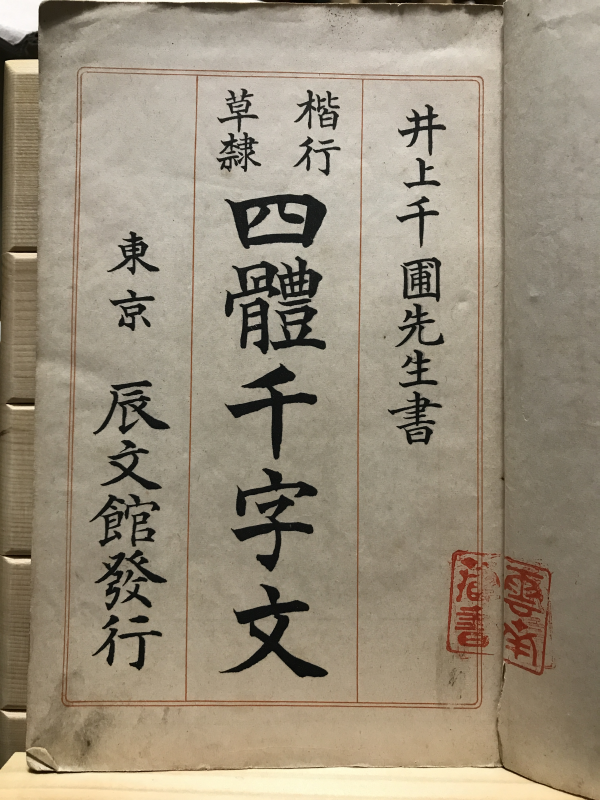 井上千圃先生書
楷行
草隸
四體千字文
東京 辰文館發行
雲南